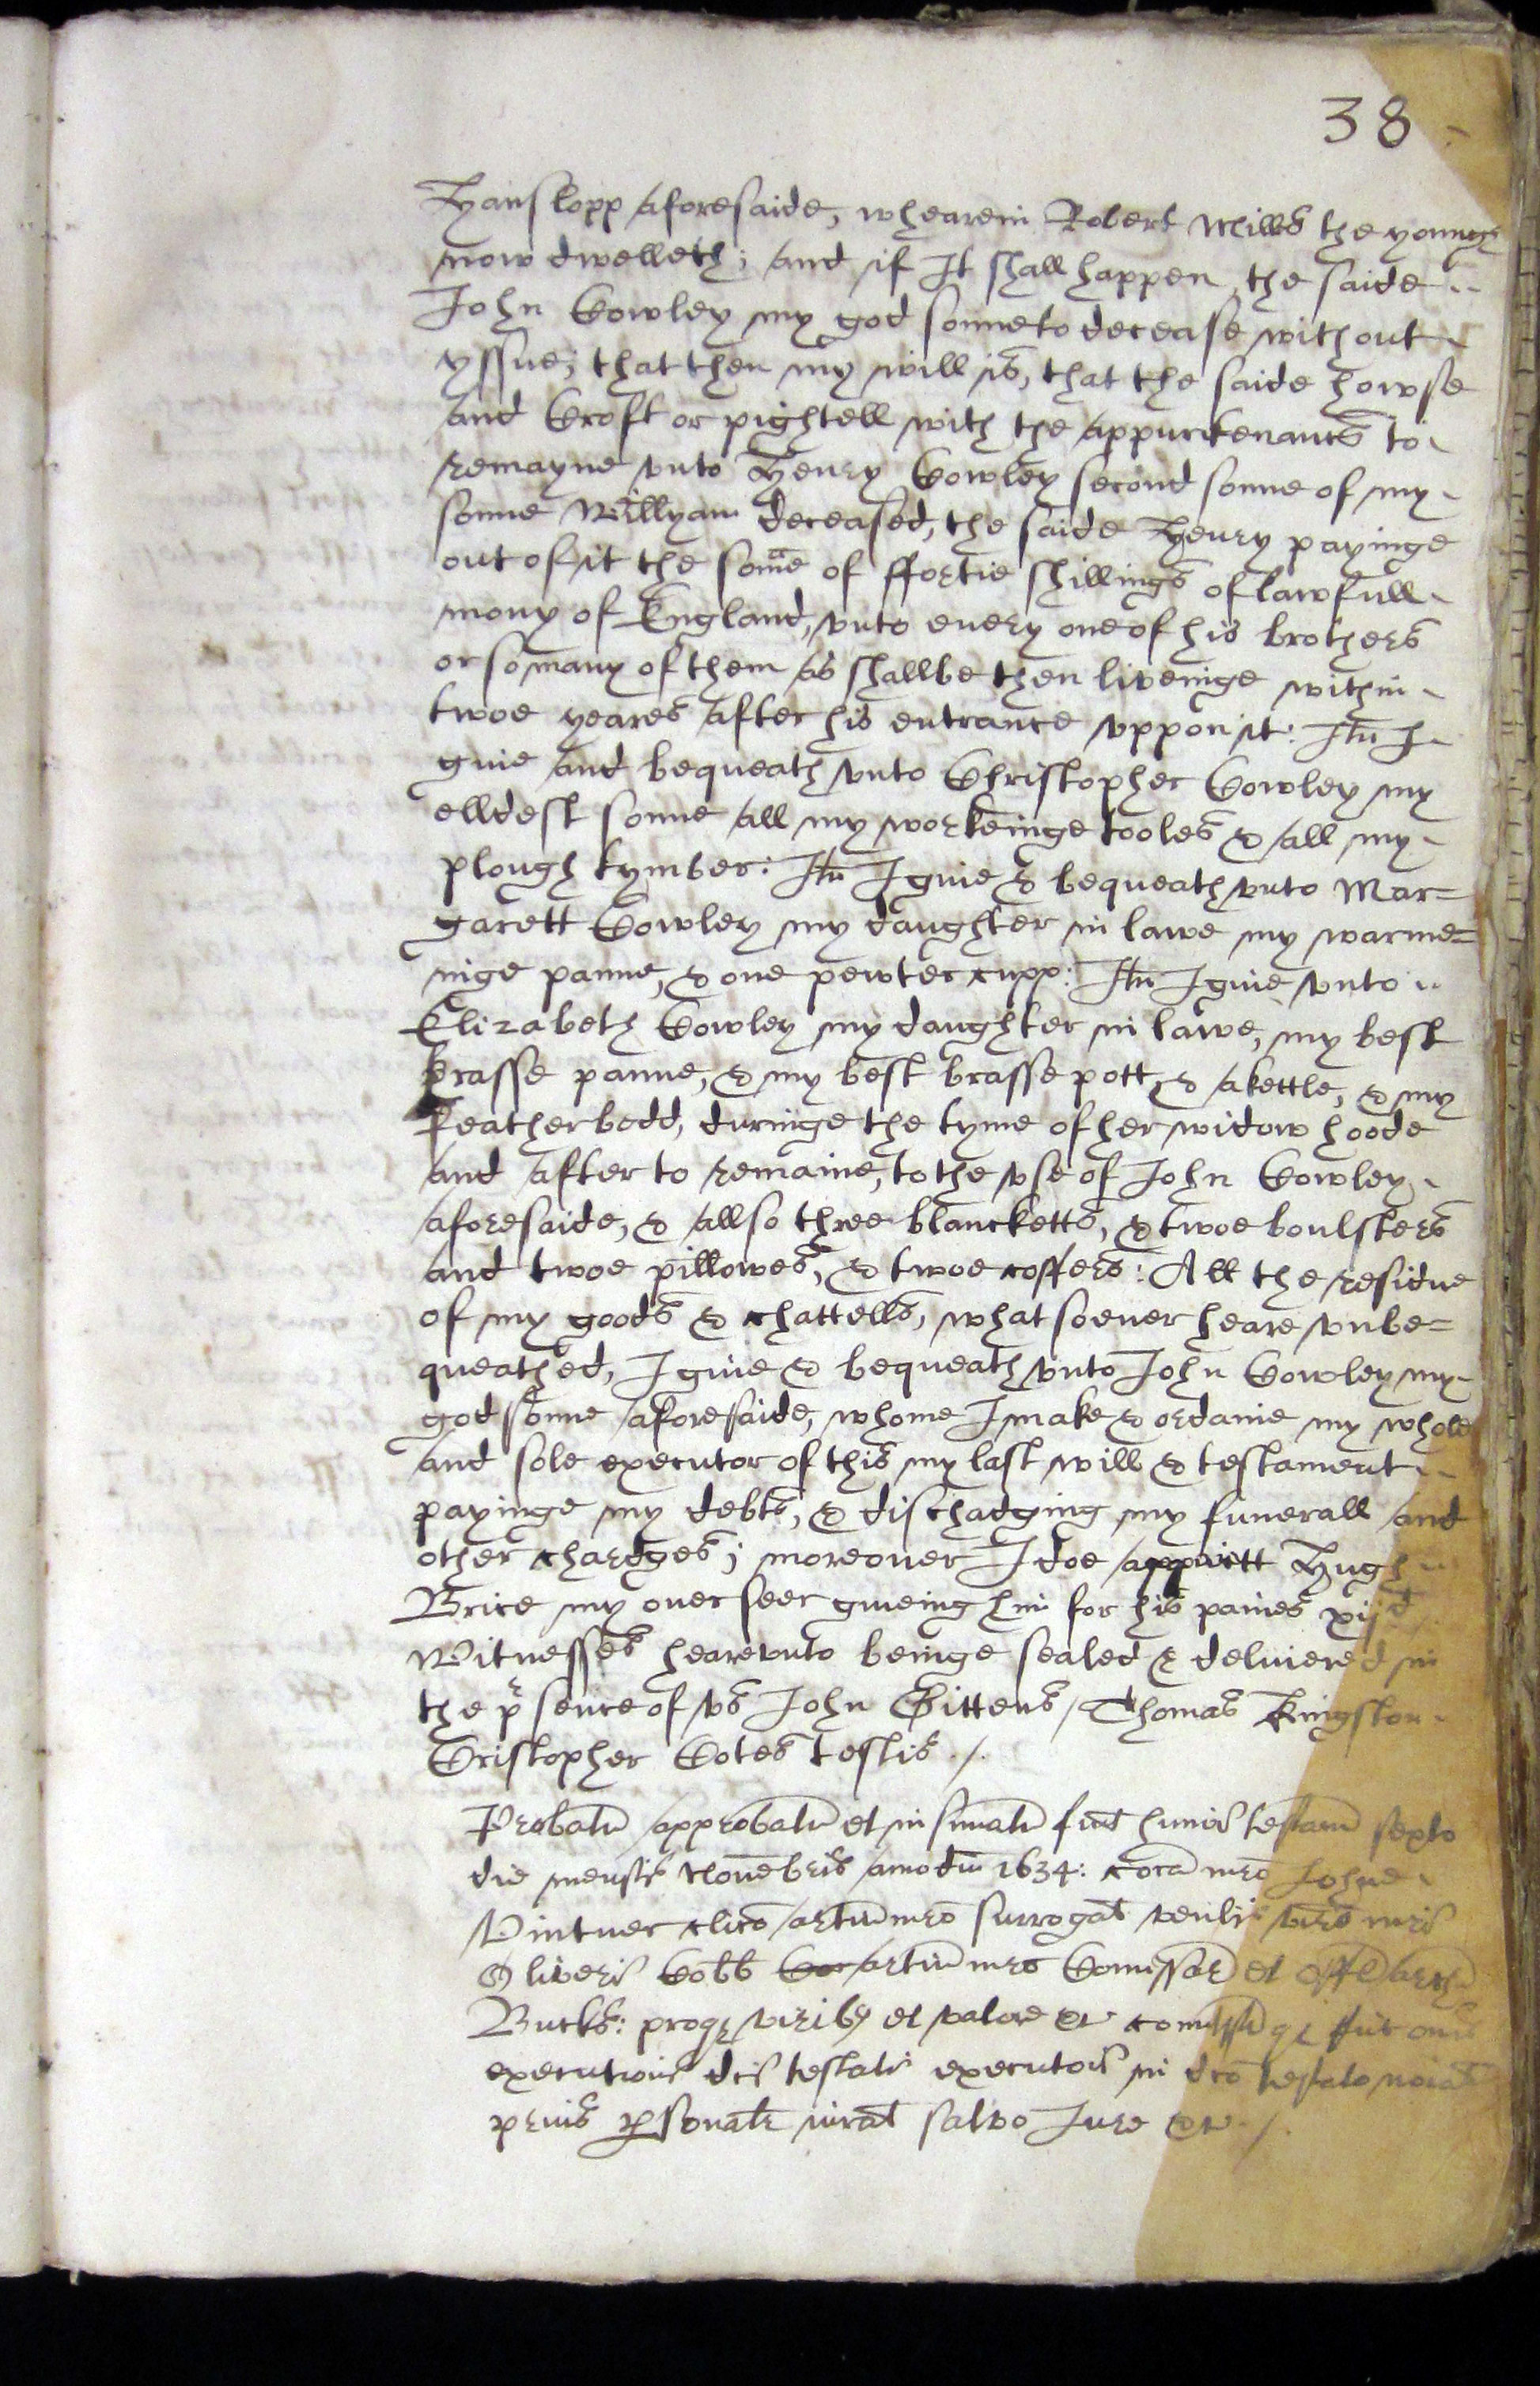 38
Hanslopp aforesaide, whearein Robert Mills the younger
now dwelleth; and if It shall happen the saide
John Cowley my god sonne to decease without
yssue; that then my will is, that the saide howse
and Croft or pightell with the appurtenancs to
remayne vnto Henry Cowley second sonne of my
sonne Willyam deceased, the saide Henry payinge
out of it the some of ffortie shillings of lawfull
mony of England, vnto euery one of his brothers
or so many of them as shallbe then liveinge within
twoe yeares after his entrance vppon it: Itm I
giue and bequeath vnto Christopher Cowley my
elldest sonne all my workeinge tooles & all my
plough tymber: Itm I giue & bequeath vnto Mar=
garett Cowley my daughter in lawe my warme=
inge panne, & one pewter cupp: Itm I giue vnto
Elizabeth Cowley my daughter in lawe, my best
brasse panne, & my best brasse pott, & a kettle, & my
Featherbedd, duringe the tyme of her widow hoode
and after to remaine, to the vse of John Cowley
aforesaide, & allso three blancketts, & twoe boulsters
and twoe pillowes, & twoe coffers: All the residue
of my goods & chattells, what soeuer heare vnbe=
queathed, I giue & bequeath vnto John Cowley my
god sonne aforesaide, whome I make & ordaine my whole
and sole executor of this my last will & testament
payinge my debts, & dischadging my funerall and
other chardges; moreouer I doe appoictt Hugh
Brice my ouer seer giueing him for his paines xijd
Witnesses hearevnto beinge sealed & deliuered in
the prsence of vs John Gittens / Thomas Kingston
Cristopher Cotes testis ./.
Probatu approbatu et insinuatu fuit huiusi testam sexto
die mensis Nouebris anno dni 1634: cora mro Johne
Vintner clico artiu mro surrogat venlis viri mri
Oliveri Cobb Cor artiu mro Comissar et offil archi
Bucks: proqz viribz et valore &c comissaqz fuit onus
executionis dci testati executori in dco testato noiat
prius psonalr iurat salvo Jure &c ./.